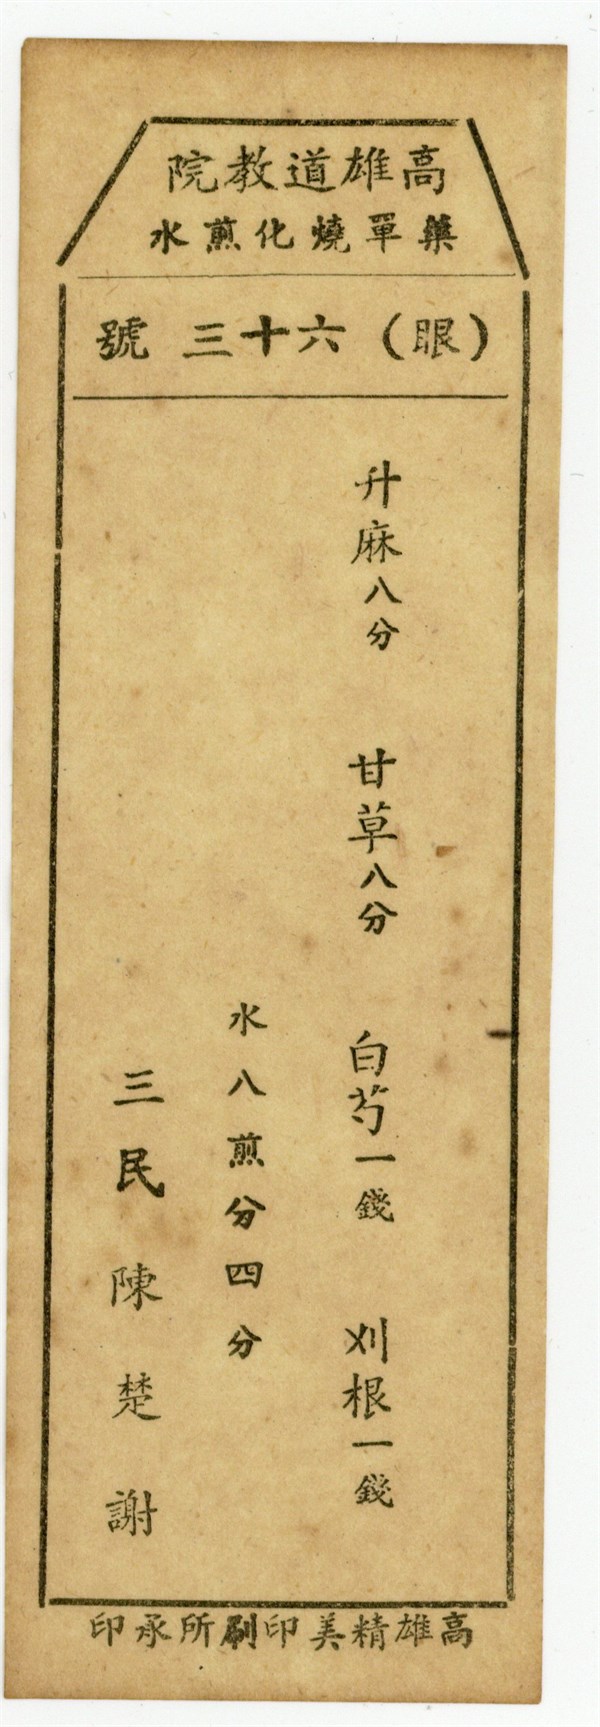 高雄道教院
藥單燒化煎水
（眼）六十三號
升麻八分　甘草八分　白芍一錢　刈根一錢
水八煎分四分
三民陳楚謝
高雄精美印刷所承印